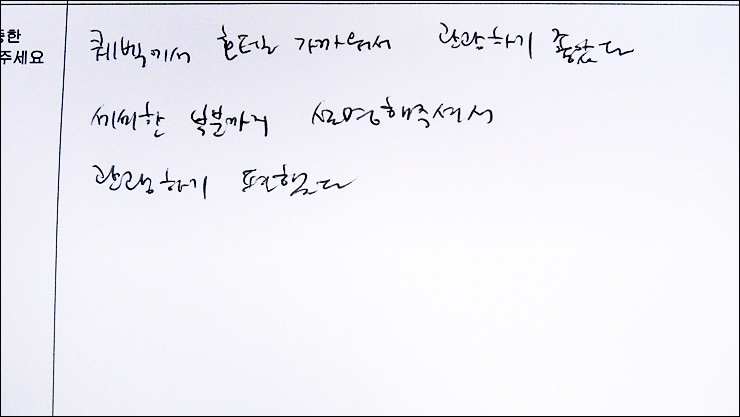 통한
주세요
퀘벡에서 호텔 가까워서 관광하기 좋았다
세세한 부분까지 설명해주셔서
관광하기 편했다